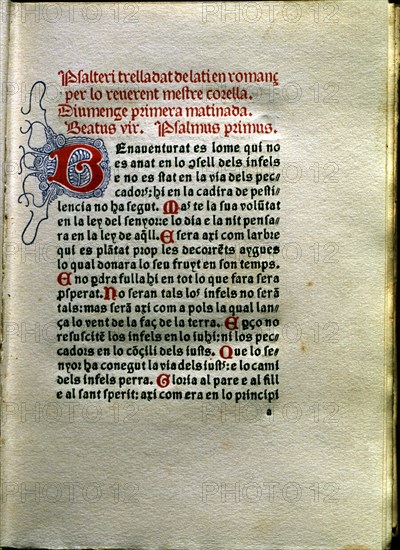 Psalteri trelladat de lati en romanç
per lo reuerent mestre corella.
Diumenge primera matinada.
Beatus vir. Psalmus primus.
BEnauenturat es lome qui no
es anat en lo ɔsell dels infels
e no es stat en la via dels pec/
cadors: hi en la cadira de pesti/
lencia no ha segut. Mas te la sua volūtat
en la ley del senyor: e lo dia e la nit pensa/
ra en la ley de aq̄ll. E sera axi com larbre
qui es plātat prop les decorrēts aygues
lo qual donara lo seu fruyt en son temps.
E no ꝑdra fulla hi en tot lo que fara sera
ꝓsperat. No seran tals los infels no serā
tals: mas serā axi com a pols la qual lan/
ça lo vent de la faç de la terra. E ꝑço no
resuscitē los infels en lo iuhi: ni los pec/
cadors en lo cōçili dels iusts. Que lo se/
nyor ha conegut la via dels iusts: e lo cami
dels infels perra. Gloria al pare e al fill
e al sant sperit: axi com era en lo principi
a
PHOTO12